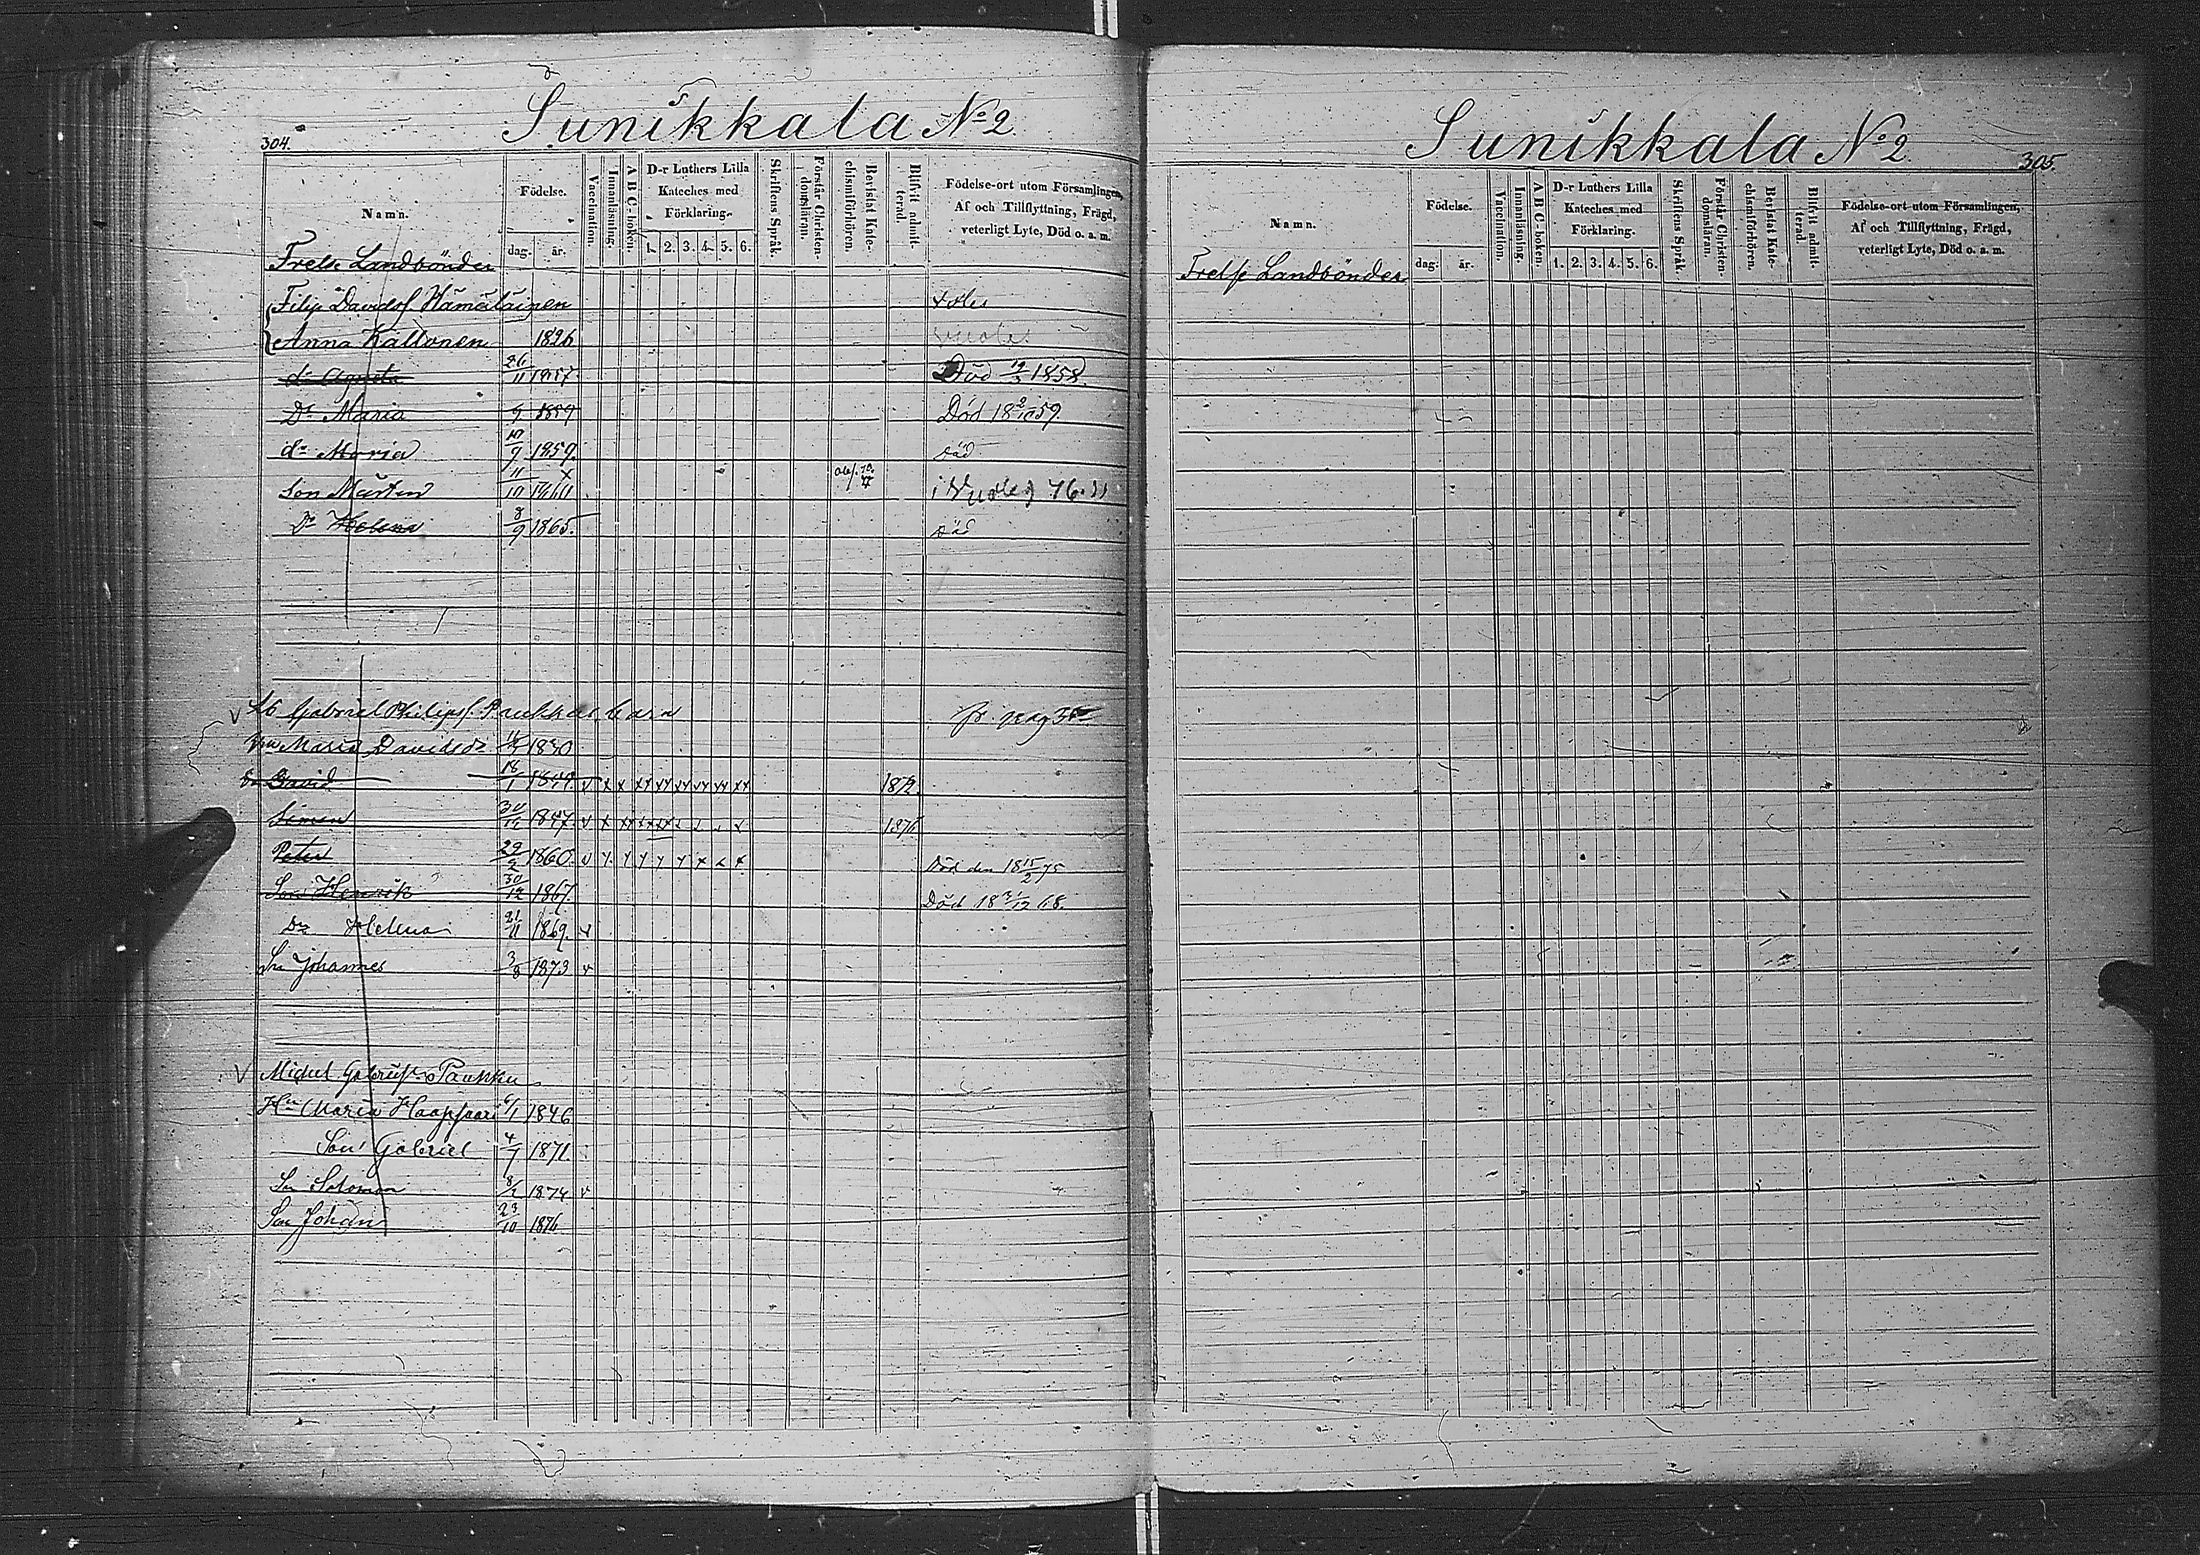 304.
Sunikkala No 2
Namn.
Födelse.
dag.
år.
Vaccination.
Innanläsning.
A B C-boken.
D-r Luthers Lilla Kateches med Förklaring.
1. 2. 3. 4. 5. 6.
Skriftens Språk.
Förstår Christendomsläran.
Bevistat Katechismiförhören.
Blifvit admitterad.
Födelse-ort utom Församlingen,
Af och Tillflyttning, Frägd,
veterligt Lyte, Död o. a. m.
Frelse Landbönder
Filip Davidsf. Hämäläinen
Anna Kallonen 1826
dr Agneta 26/11 1857. Död 19/3 1858.
Dr Maria 9 1859 Död 18 59.
dr Maria 19/9 1859. Död
Son Mårten 11/10 1860
Dr Helena 8/9 1865. Död
Gabriel Philipsf. fr. pag
Maria Davidsdr 1830
David 18/1 1849. 1872.
Simon 30/12 1857.
Peter 29/2 1860. Död den 18 15/2 75
Son Henrik 30/12 1867. Död 18 /12 68.
Dr Helena 21/11 1869.
Sn Johannes 3/8 1873
Michel Paukku
Hu Maria Haapsaari 6/1 1846
Son Gabriel 4/7 1871.
Sn Salomon 8/2 1874
Son Johan 23/10 1876
Sunikkala No 2
305.
Namn.
Födelse.
dag.
år.
Vaccination.
Innanläsning.
A B C-boken.
D-r Luthers Lilla Kateches med Förklaring.
1. 2. 3. 4. 5. 6.
Skriftens Språk.
Förstår Christendomsläran.
Bevistat Katechismiförhören.
Blifvit admitterad.
Födelse-ort utom Församlingen,
Af och Tillflyttning, Frägd,
veterligt Lyte, Död o. a. m.
Frelse Landbönder